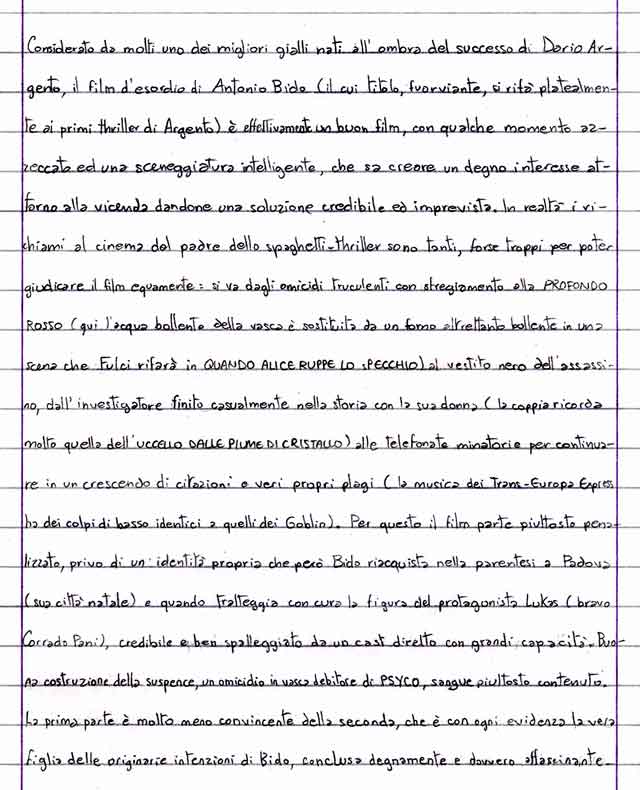 Considerato da molti uno dei migliori gialli nati all'ombra del successo di Dario Ar-
gento, il film d'esordio di Antonio Bido (il cui titolo, fuorviante, si rifà platealmen-
te ai primi thriller di Argento) è effettivamente un buon film, con qualche momento az-
zeccato ed una sceneggiatura intelligente, che sa creare un degno interesse at-
torno alla vicenda dandone una soluzione credibile ed imprevista. In realtà i ri-
chiami al cinema del padre dello spaghetti-thriller sono tanti, forse troppi per poter
giudicare il film equamente: si va dagli omicidi truculenti con stregiamento alla PROFONDO
ROSSO (qui l'acqua bollente della vasca è sostituita da un forno altrettanto bollente in una
scena che Fulci rifarà in QUANDO ALICE RUPPE LO SPECCHIO) al vestito nero dell'assassi-
no, dall'investigatore finito casualmente nella storia con la sua donna (la coppia ricorda
molto quella dell'UCCELLO DALLE PIUME DI CRISTALLO) alle telefonate minatorie per continua-
re in un crescendo di citazioni o veri propri plagi (la musica dei Trans-Europa Express
ha dei colpi di basso identici a quelli dei Goblin). Per questo il film parte piuttosto pena-
lizzato, privo di un'identità propria che però Bido riacquista nella parentesi a Padova
(sua città natale) e quando tratteggia con cura la figura del protagonista Lukas (bravo
Corrado Pani), credibile e ben spalleggiato da un cast diretto con grandi capacità. Buo-
na costruzione della suspence, un omicidio in vasca debitore di PSYCO, sangue piuttosto contenuto.
La prima parte è molto meno convincente della seconda, che è con ogni evidenza la vera
figlia delle originarie intenzioni di Bido, conclusa degnamente e davvero affascinante.